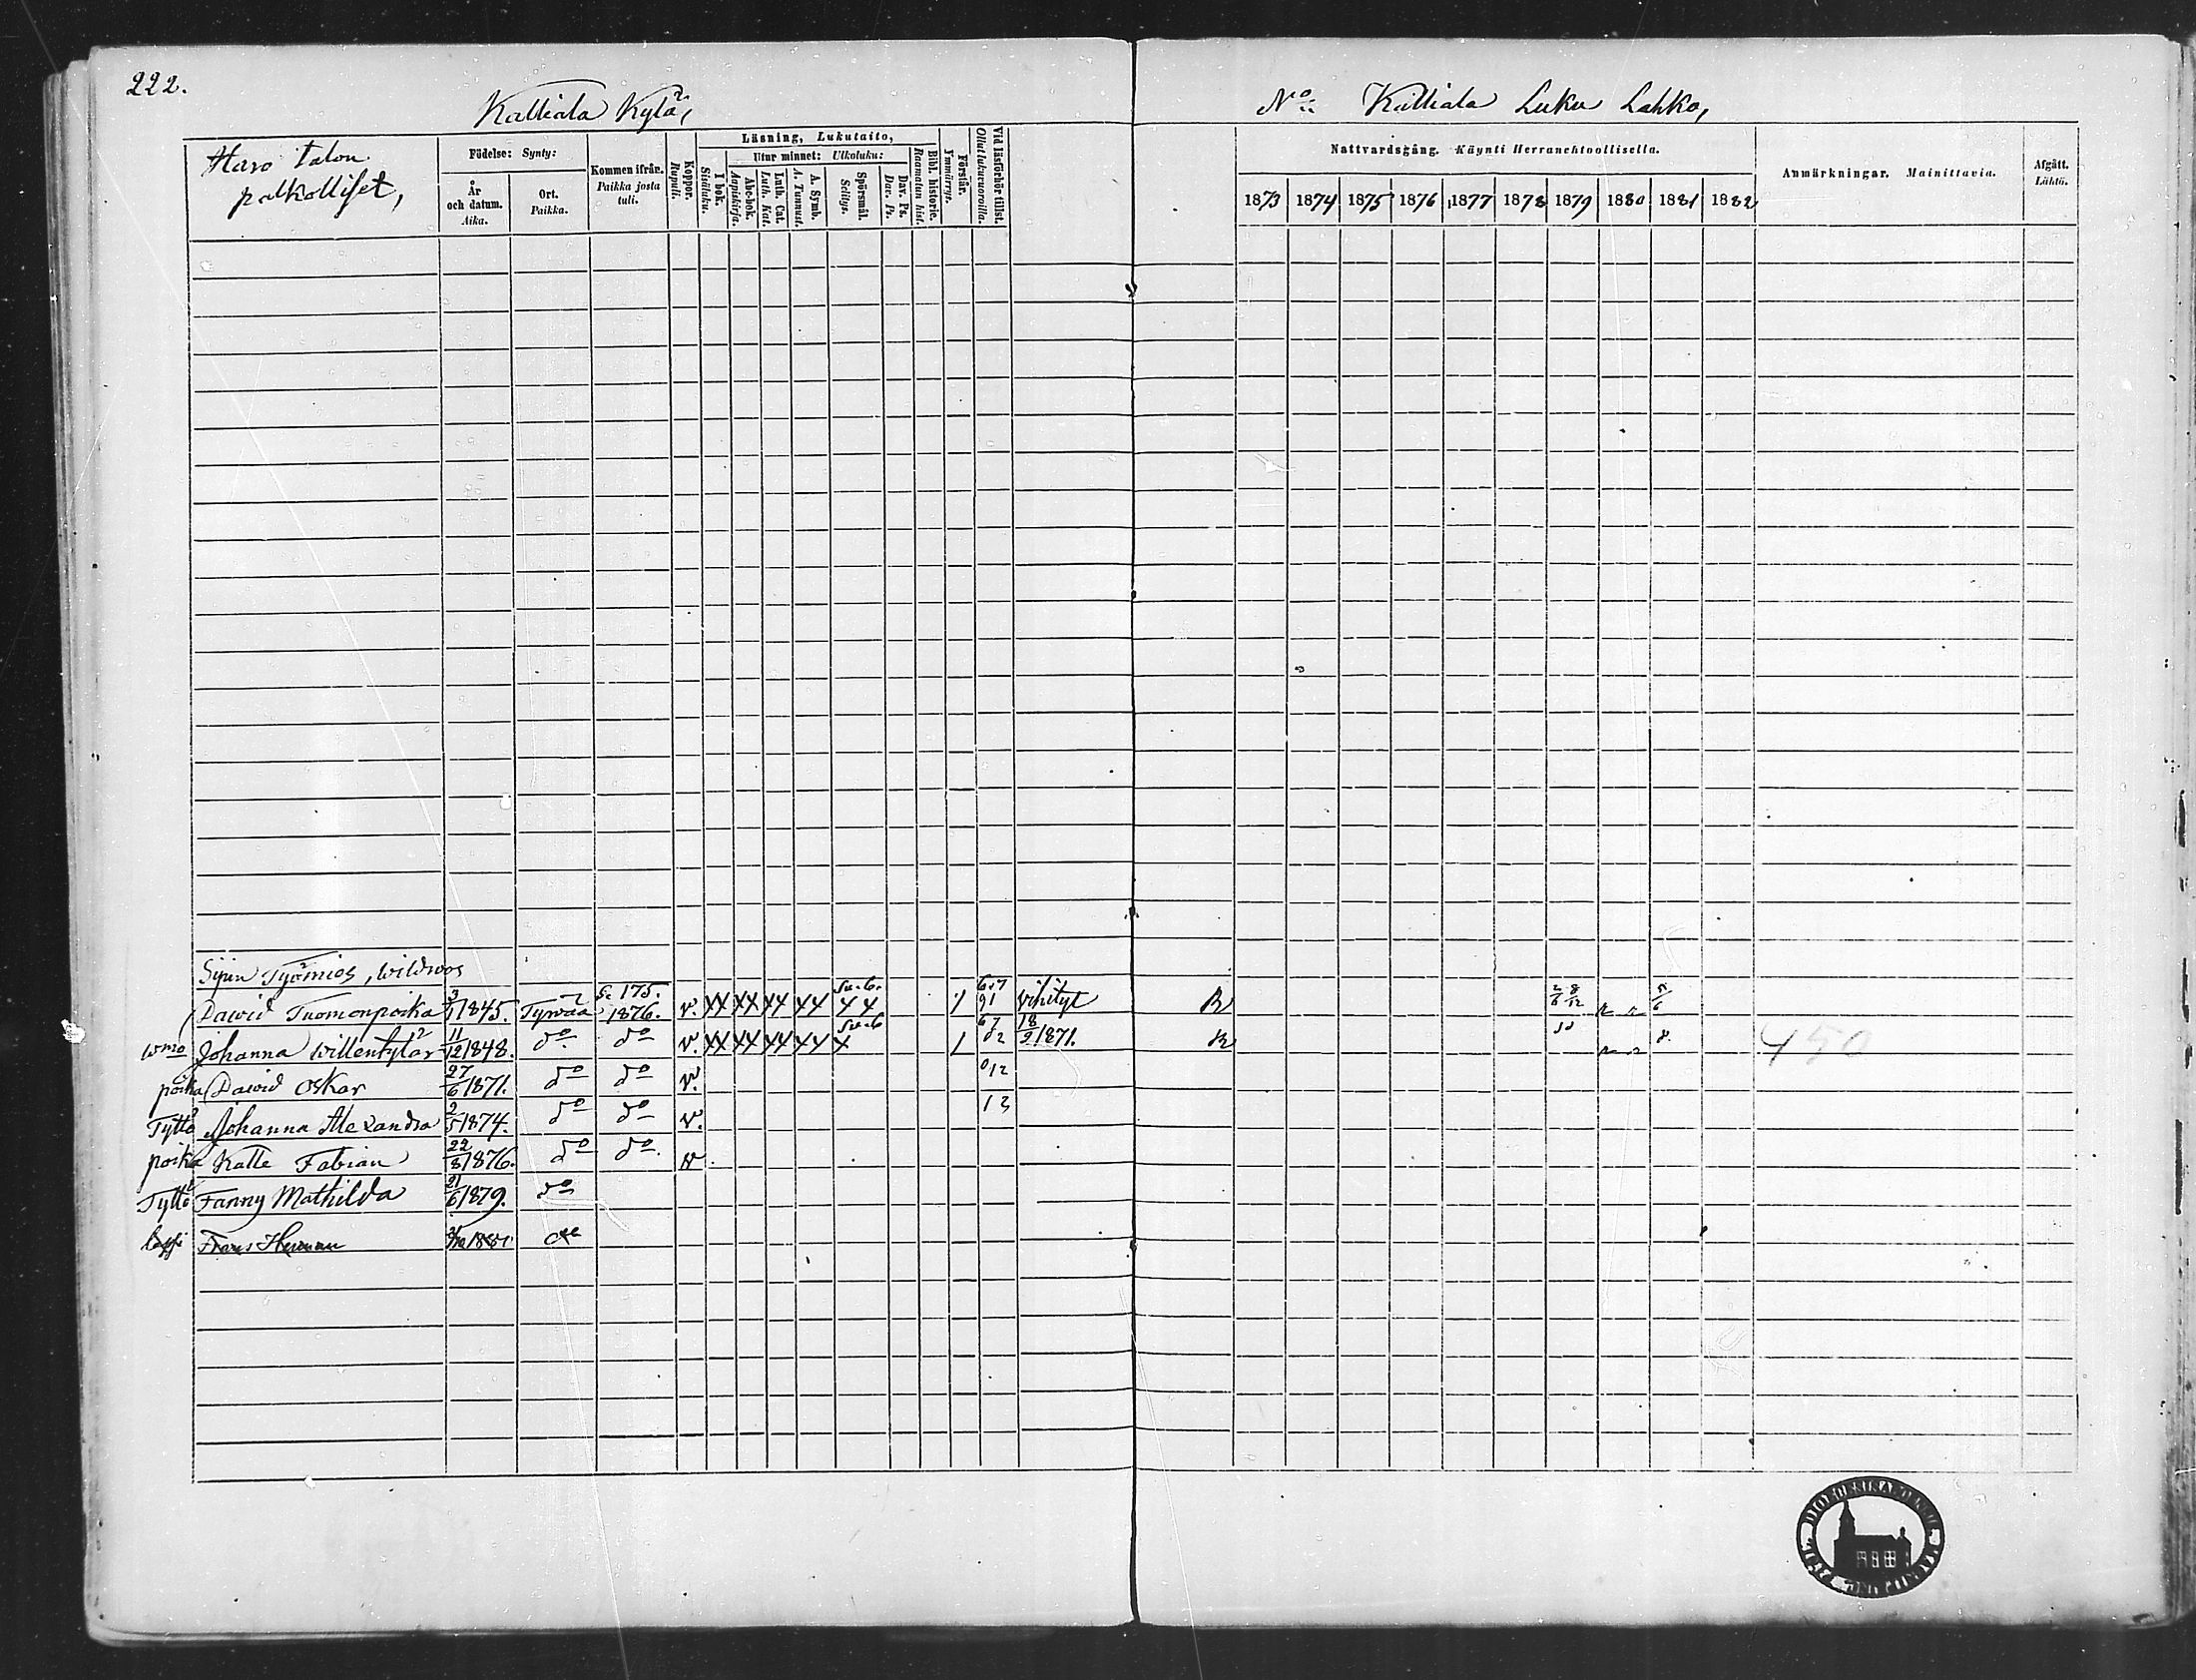 222.
Kalliala Kylä,
No Kalliala Luku Lahko,
Haro talon palkolliset,
Födelse: Synty:
År och datum. Aika.
Ort. Paikka.
Kommen ifrån. Paikka josta tuli.
Koppor. Rupuli.
Läsning, Lukutaito,
I bok. Sisäluku.
Utur minnet: Ulkoluku:
Abc-bok. Aapiskirja.
Luth. Cat. Luth. Kat.
A. Symb. A. Tunnust.
Spörsmål. Selitys.
Dav. Ps. Dav. Ps.
Bibl. historie. Raamatun hist.
Förstår. Ymmärrys.
Vid läsförhör tillst. Ollut lukuvuoroilla.
Nattvardsgång. Käynti Herranehtoollisella.
1873 1874 1875 1876 1877 1878 1879 1880 1881 1882
Anmärkningar. Mainittavia.
Afgått. Lähtö.
Dawid Tuomonpoika 3/1 1845. Tyrvää S. 175. 1876. v. XX XX XX XX XX 1 Vihityt R
wmo Johanna Willentytär 11/12 1848. do do v. XX XX XX XX X 1 18/2 1871. R 8. 450
poika Dawid Oskar 27/6 1871. do do v.
Tyttö Johanna Alexandra 2/5 1874. do do v. 13
poika Kalle Fabian 22/8 1876. do do. v
Tyttö Fanny Mathilda 21/6 1879. do
lapsi Frans Herman 1881